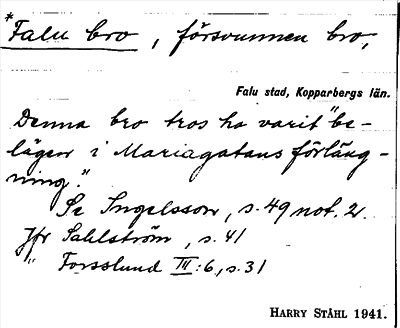 *Falu bro, försvunnen bro,
Falu stad, Kopparbergs län.
Denna bro tros ha varit "be-
lägen i Mariagatans förläng-
ning."
Se Ingelsson, s. 49 not. 2.
Jfr Sahlström, s. 41
" Forsslund III:6, s. 31
HARRY STÅHL 1941.